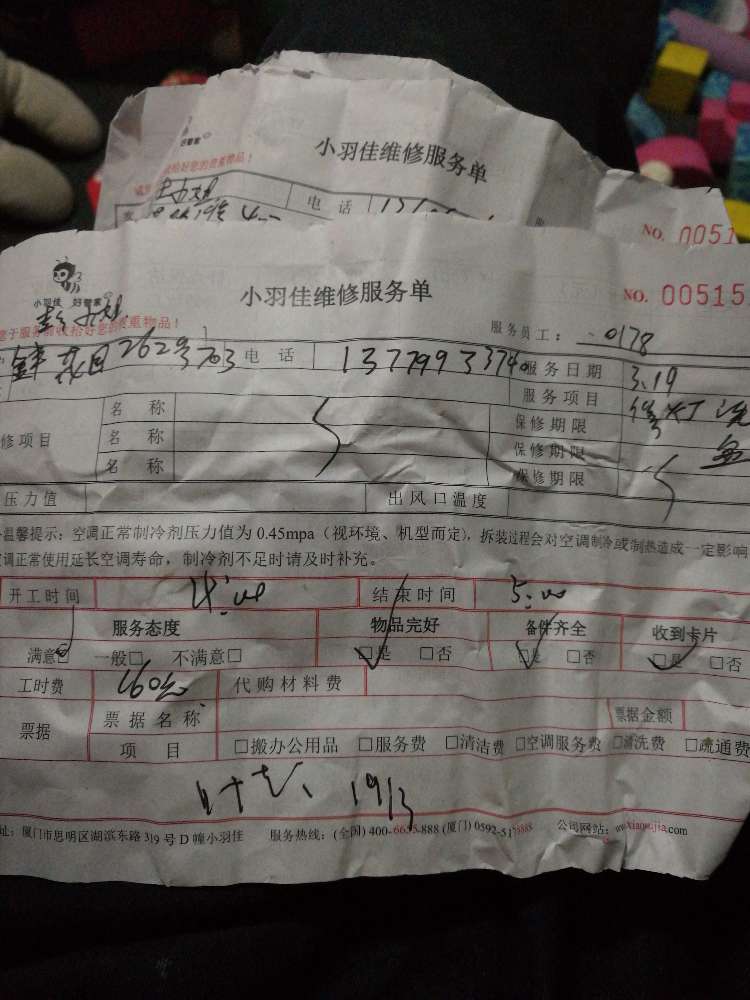 小羽佳维修服务单
好管家
收拾好您的贵重物品！
电 话
NO. 0051
小羽佳 好管家
小羽佳维修服务单
NO. 00515
服务员工： 0178
于服务前收拾好您的贵重物品！
262号
703
电 话
服务日期 3.19
服务项目 修灯 洗
修项目
名 称
名 称
名 称
保修期限
保修期限
保修期限
压力值
出风口温度
温馨提示：空调正常制冷剂压力值为 0.45mpa（视环境、机型而定），拆装过程会对空调制冷或制热造成一定影响
调正常使用延长空调寿命，制冷剂不足时请及时补充。
开工时间 4:00 结束时间 5:00
服务态度 物品完好 备件齐全 收到卡片
满意□ 一般□ 不满意□ □是 □否 □是 □否 □是 □否
工时费 160元 代购材料费
票据 票据名称 票据金额
项 目 □搬办公用品 □服务费 □清洁费 □空调服务费 □清洗费 □疏通费
19/3
址：厦门市思明区湖滨东路 319 号 D 幢小羽佳 服务热线：(全国) 400-6655-888 (厦门) 0592-5155888 公司网站：www.xiaoyujia.com